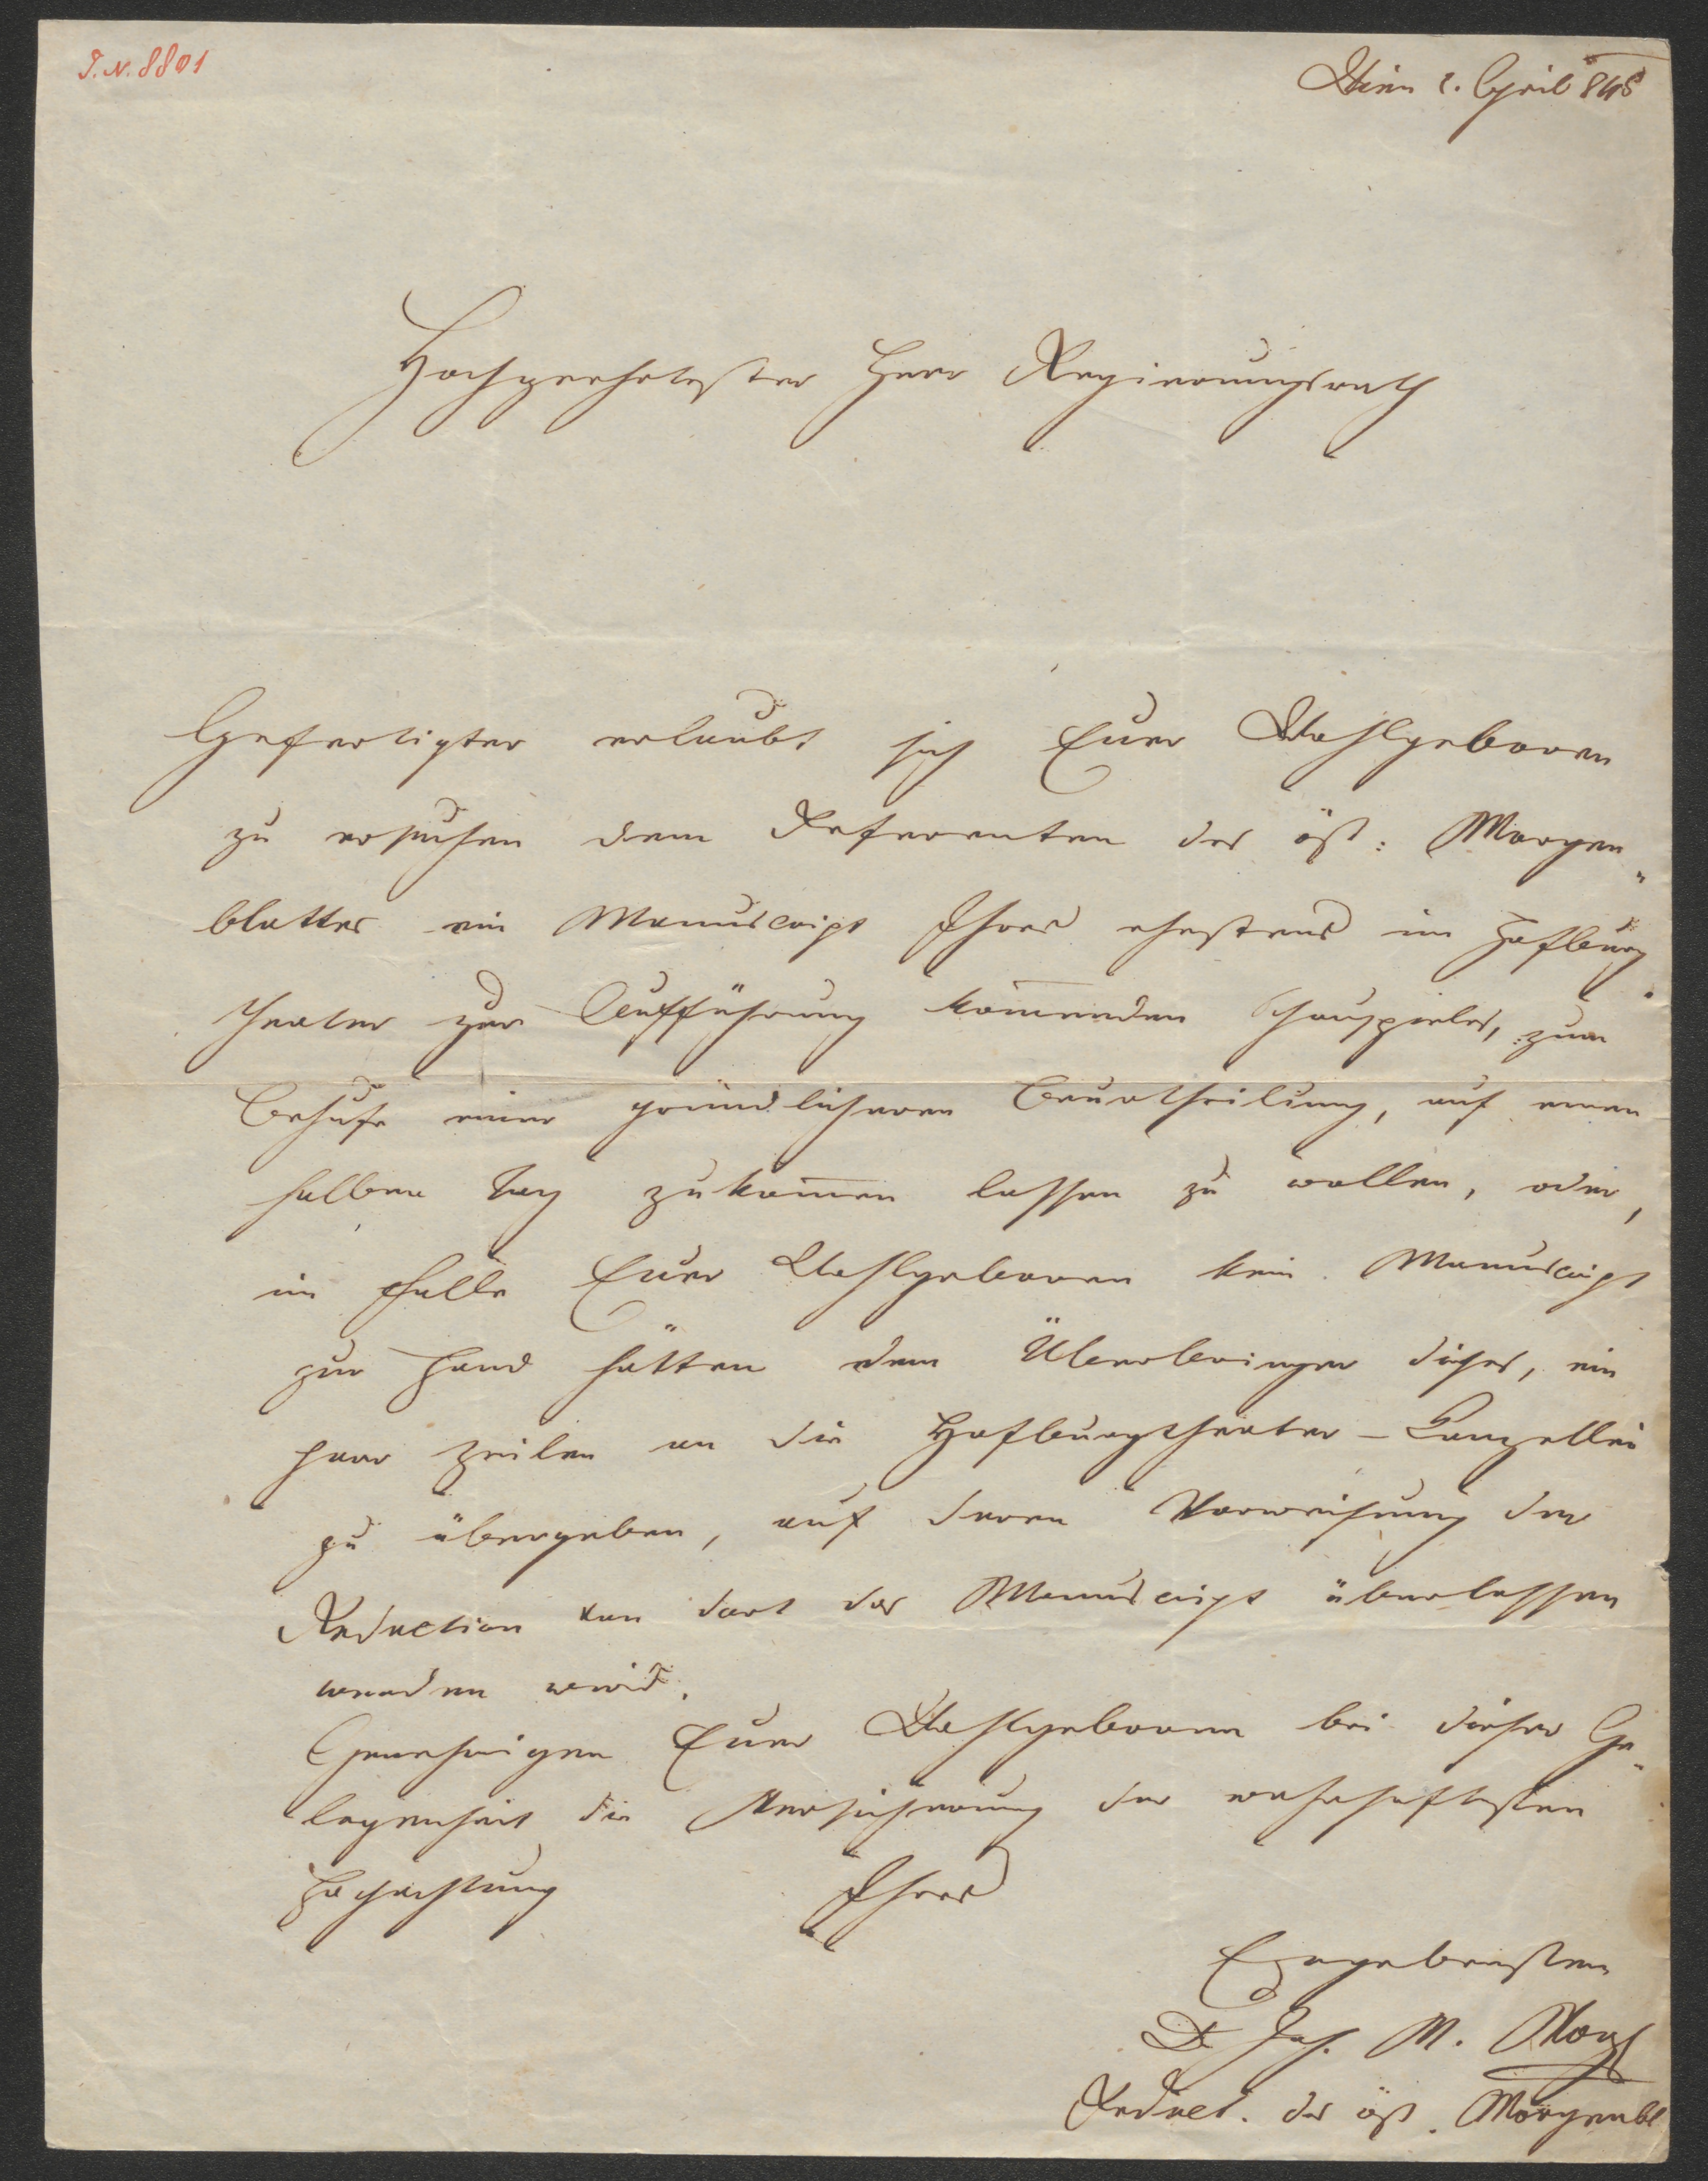 I.N. 8801
Wien 2. April 848
Hochgeehrtester Herr Regierungsrath
Gefertigter erlaubt sich Euer Wohlgeboren
zu ersuchen dem Referenten des öst: Morgen„
blattes ein Manuscript Ihres ehestens im Hofburg
theater zur Aufführung kom̄enden Schauspieles, zum
Behufe einer gründlicheren Beurtheilung, auf einen
halben Tag zukom̄en lassen zu wollen, oder,
im Falle Euer Wohlgeboren kein Manuscript
zur Hand hätten dem Überbringer dieses, ein
paar Zeilen an die Hofburgtheater-Canzellei
zu übergeben, auf deren Vorweisung der
Redaction von dort das Manuscript überlassen
werden wird.
Genehmigen Euer Wohlgeboren bei dieser Ge„
legenheit die Versicherung der wahrhaftesten
Hochachtung Ihres
Ergebensten
Dr Joh. N. Vogl
Redact. des öst. Morgenbl